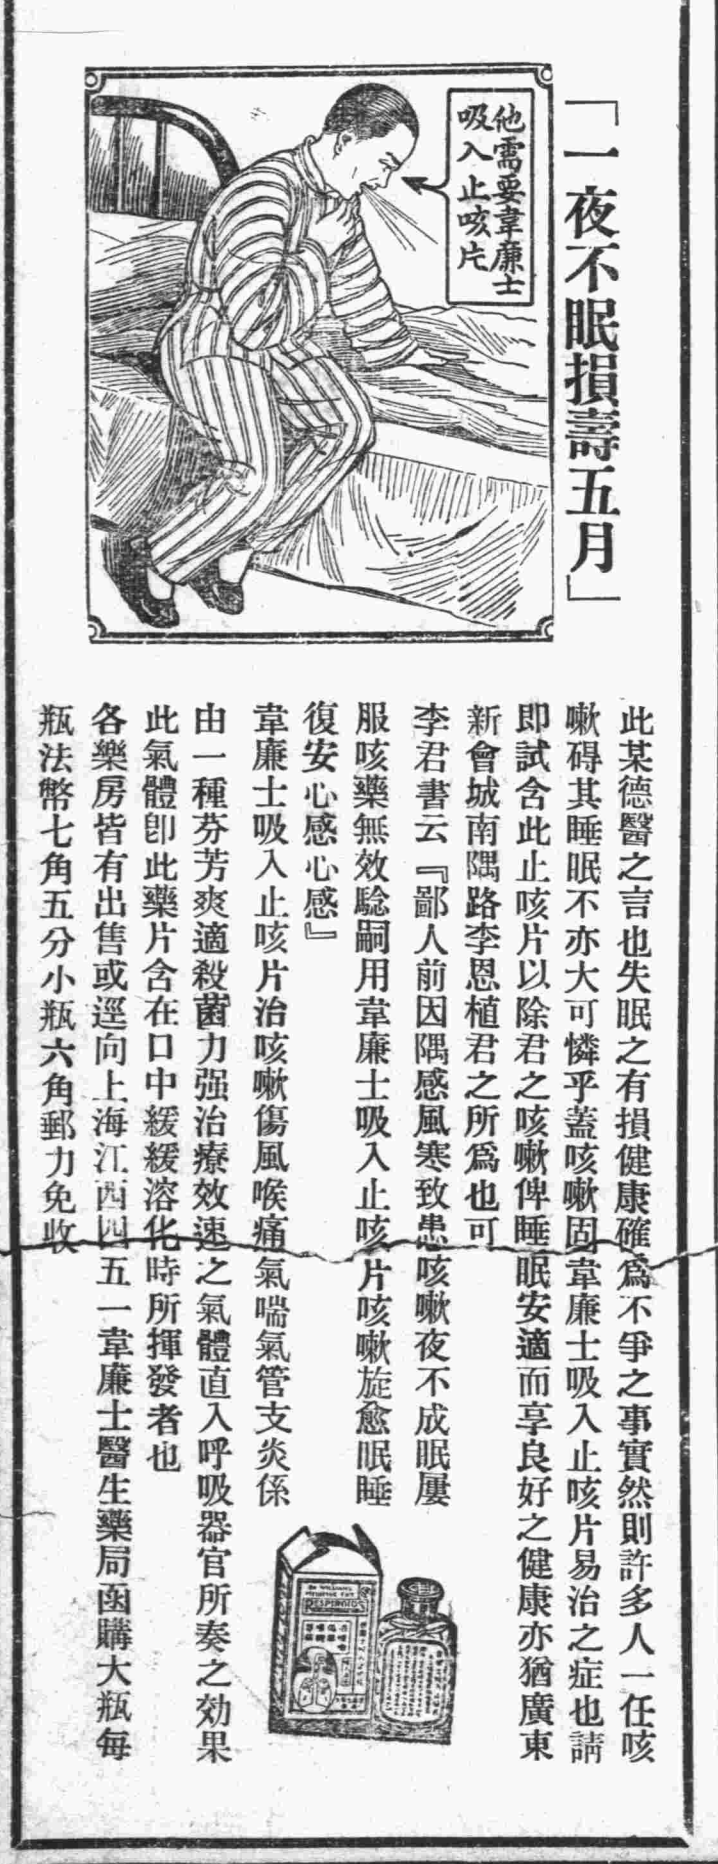 「一夜不眠損壽五月」
他需要韋廉士
吸入止咳片
此某德醫之言也失眠之有損健康確爲不爭之事實然則許多人一任咳
嗽碍其睡眠不亦大可憐乎蓋咳嗽固韋廉士吸入止咳片易治之症也請
即試含此止咳片以除君之咳嗽俾睡眠安適而享良好之健康亦猶廣東
新會城南隅路李恩植君之所爲也可
李君書云『鄙人前因隅感風寒致患咳嗽夜不成眠屢
服咳藥無效騐嗣用韋廉士吸入止咳片咳嗽旋愈眠睡
復安心感心感』
韋廉士吸入止咳片治咳嗽傷風喉痛氣喘氣管支炎係
由一種芬芳爽適殺菌力强治療效速之氣體直入呼吸器官所奏之効果
此氣體卽此藥片含在口中緩緩溶化時所揮發者也
各藥房皆有出售或逕向上海江西四五一韋廉士醫生藥局函購大瓶每
瓶法幣七角五分小瓶六角郵力免收
DR WILLIAMS
MEDICINE CO'Y
RESPIROIDS